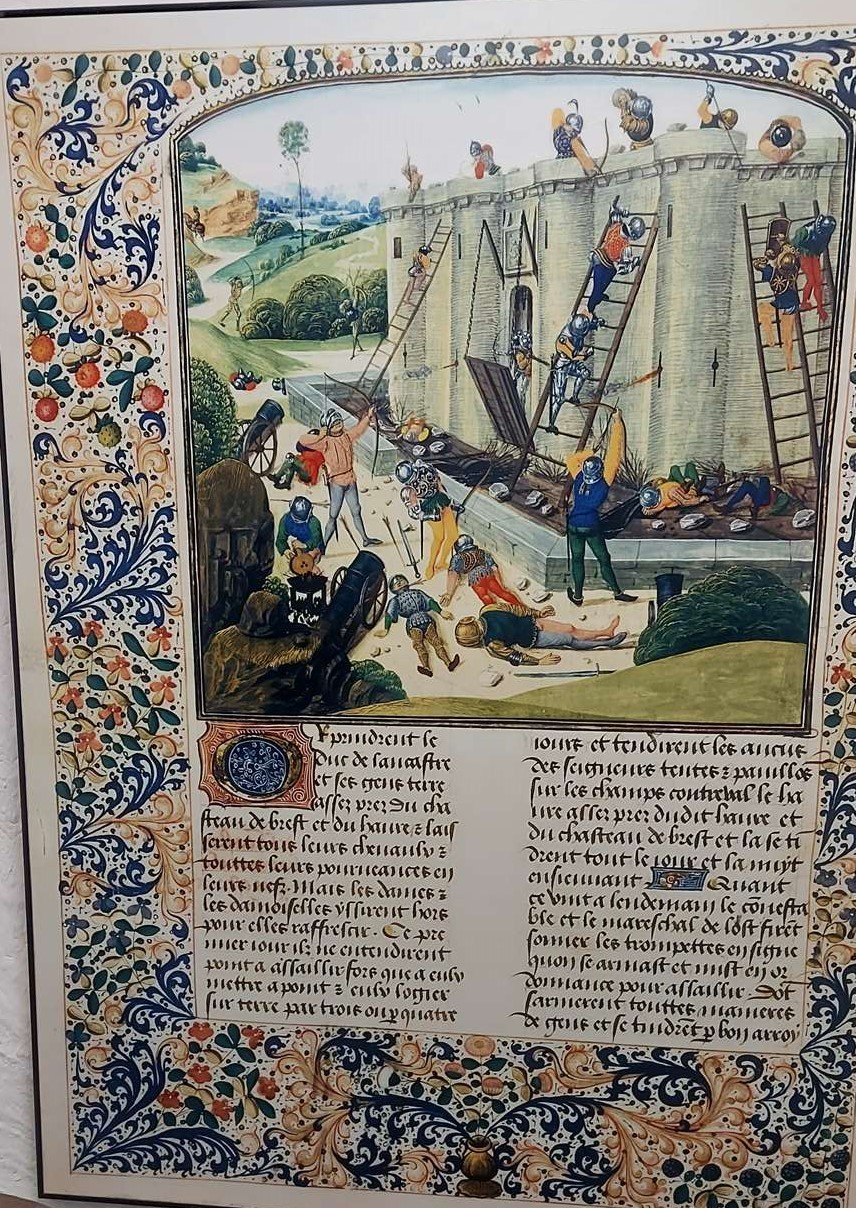 Or prindrent le
duc de lancastre
et ses gens terre
assez prez du cha
steau de brest et du havre ⁊ lais
serent tous leurs chevaulx ⁊
touttes leurs pourveances en
leurs nefz. Mais les dames ⁊
les damoiselles yssirent hors
pour elles raffrescir. Ce pre
mier iour ilz ne entendirent
point a assaillir fors que a eulx
mettre a point ⁊ eulx logier
sur terre par trois ou quatre
iours et tendirent les aucus
des seigneurs tentes ⁊ pavillos
sur les champs contreval le ha
vre assez prez dudit havre et
du chasteau de brest et la se ti
drent tout le iour et la nuyt
ensieuvant Quant
ce vint a lendemain le conesta
ble et le mareschal de lost firet
sonner les trompettes en signe
quon se armast et mist en or
donnance pour assaillir. Dot
sarmerent touttes manieres
de gens et se tindret p bon arroy